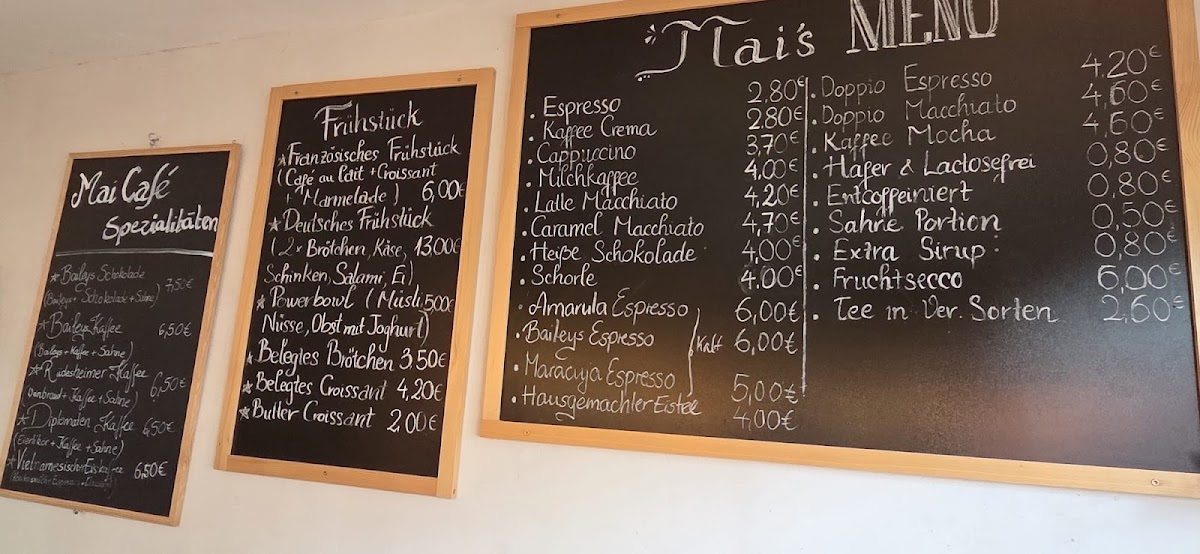 Mai Café
Spezialitäten
* Baileys Schokolade 7,50€
(Baileys + Schokolade + Sahne)
* Baileys Kaffee 6,50€
(Baileys + Kaffee + Sahne)
* Rüdesheimer Kaffee 6,50€
+ Kaffee + Sahne)
* Diplomaten Kaffee 6,50€
(Eierlikör + Kaffee + Sahne)
6,50€
Frühstück
* Französisches Frühstück
(Café au Lait + Croissant
+ Marmelade) 6,00€
* Deutsches Frühstück
(2x Brötchen, Käse, 13,00€
Schinken, Salami, Ei)
* Powerbowl (Müsli, 5,00€
Nüsse, Obst mit Joghurt)
* Belegtes Brötchen 3,50€
* Belegtes Croissant 4,20€
* Butter Croissant 2,00€
Mai's MENÜ
. Espresso 2,80€
. Kaffee Crema 2,80€
. Cappuccino 3,70€
. Milchkaffee 4,00€
. Latte Macchiato 4,20€
. Caramel Macchiato 4,70€
. Heiße Schokolade 4,00€
. Schorle 4,00€
. Amarula Espresso 6,00€
. Baileys Espresso kalt 6,00€
. Maracuja Espresso 5,00€
. Hausgemachter Eistee 4,00€
. Doppio Espresso 4,20€
. Doppio Macchiato 4,60€
. Kaffee Mocha 4,60€
. Hafer & Lactosefrei 0,80€
. Entcoffeiniert 0,80€
. Sahne Portion 0,50€
. Extra Sirup 0,80€
. Fruchtsecco 6,00€
. Tee in Ver. Sorten 2,60€